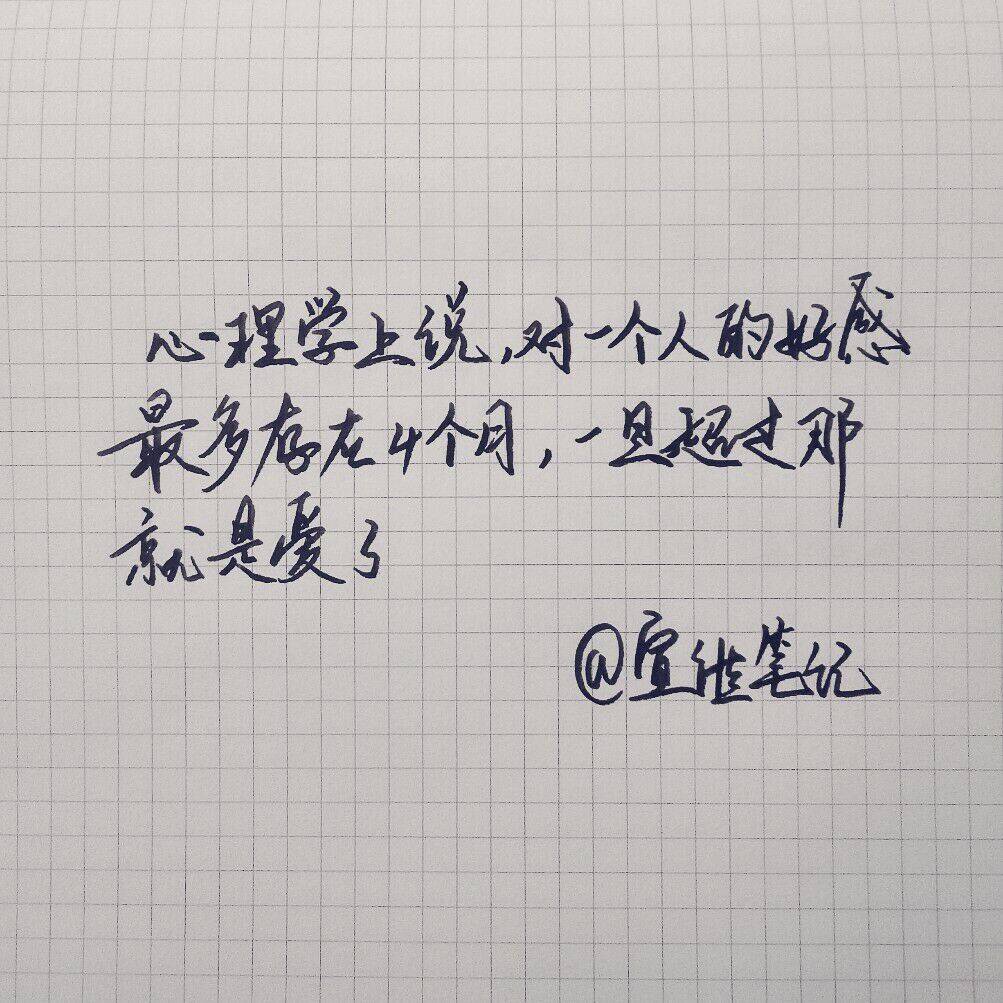 心理学上说,对一个人的好感
最多存在4个月,一旦超过那
就是爱了
@宣继笔记